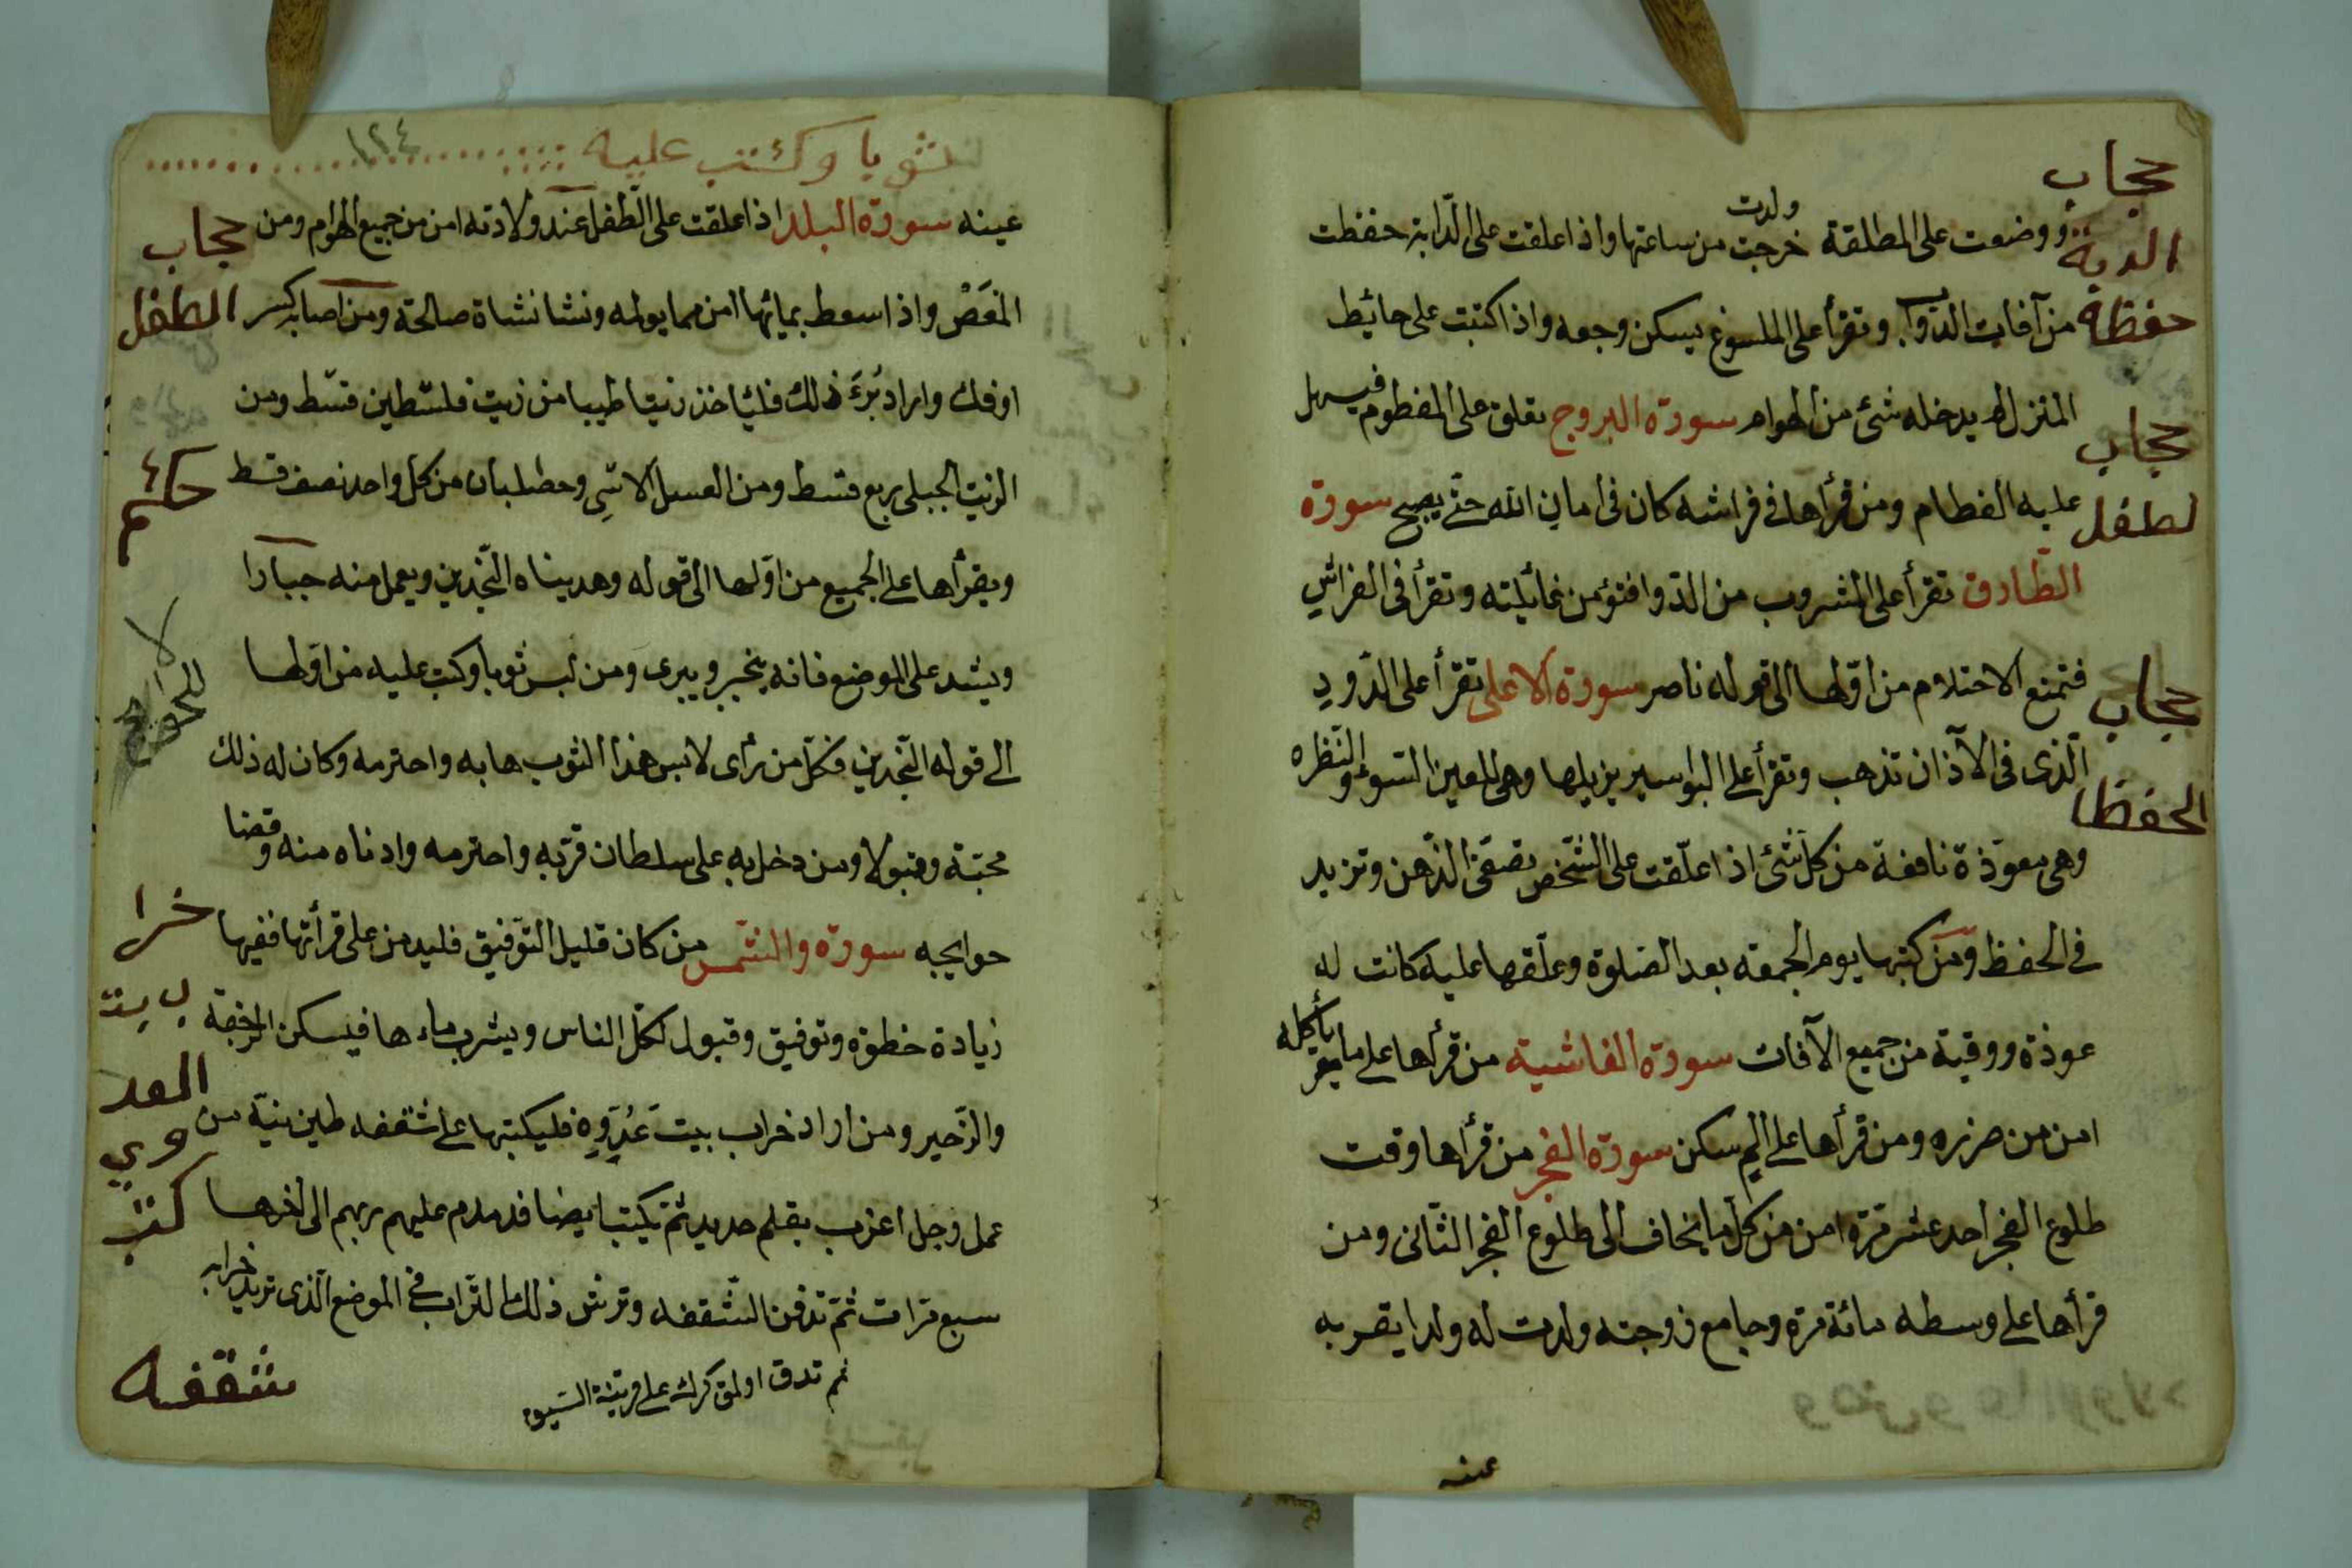 حجاب
الدبة
حفظة
حجاب
لطفل
حجاب
الحفظا
ووضعت على المطلقة ولدت خرجت من ساعتها واذا علقت على الدابة حفظت
من آفات الدّوابّ وتقرأ على الملسوع يسكن وجعه واذا كتبت على حائيط
المنزل لم يدخله شئ من الهوام سورة البروج تعلق على المفطوم فيسهل
عليه الفطام ومن قرأها في فراشه كان فى امان الله حتّى يصبح سورة
الطّارق تقرأ على المشروب من الدّوا فتؤمن غائيلته وتقرأ فى الفراش
فتمنع الاحتلام من اوّلها الى قوله ناصر سورة الاعلى تقرأ على الدّود
الّذى فى الآذان تذهب وتقرأ على البواسير يزيلها وهى للعين السّوء والنّظره
وهى معوّذة نافعة من كلّ شئ اذا علّقت على الشّخص تصفى الذّهن وتزيد
في الحفظ ومن كتبها يوم الجمعه بعد الصّلوة وعلّقها عليه كانت له
عوذة ووقية من جميع الآفات سورة الغاشية من قرأها على ما يأكله
امن من ضرره ومن قرأها على الم سكن سورة الفجر من قرأها وقت
طلوع الفجر احد عشر مرّة امن من كلّ ما يخاف الى طلوع الفجر الثّانى ومن
قرأها على وسطه مائة مرة وجامع زوجته ولدت له ولدا يقر به
عينه
ثوبا وكتب عليه
١٢٤
عينه سورة البلد اذا علقت على الطّفل عند ولادته امن من جميع الهوام ومن
المغَصْ واذا سعط بمائها امن مما يولمه ونشا نشاة صالحة ومن اصابه كسر
او فك واراد بُرءَ ذلك فليأخذ زيتا طيبا من زيت فلسطين قسط ومن
الزيت الجبلى ربع قسط ومن العسل وحصلبان من كل واحد نصف قسط
ويقرأها على الجميع من اوّلها الى قوله وهديناه النّجدين ويعمل منه جبارا
ويشد على الموضع فانه ينجبر ويبرى ومن لبس ثوبا وكتب عليه من اوّلها
الى قوله النّجدين فكلّ من رأى لابس هذا الثوب هابه واحترمه وكان له ذلك
محبّة وقبولا ومن دخل به على سلطان قرّبه واحترمه وادناه منه وقضا
حوايجه سورة والشّمس من كان قليل التّوفيق فليدمن على قرأتها ففيها
زيادة خطوة وتوفيق وقبول لكلّ الناس ويشرب ماءها فيسكن الرّجفة
والزّحير ومن اراد خراب بيت عَدُوِّه فليكتبها على شقفه طين نيّة من
عمل رجل اعزب بقلم حديد ثمّ يكتب ايضا فدمدم عليهم ربهم الى اخرها
سبع مرّات ثمّ تدفن الشّقفه وترش ذلك التّراب في الموضع الّذى تريد خرابه
ثم تدق
حجاب
الطفل
حكم
خرا
ب بيت
العد
وي
كتب
شقفه